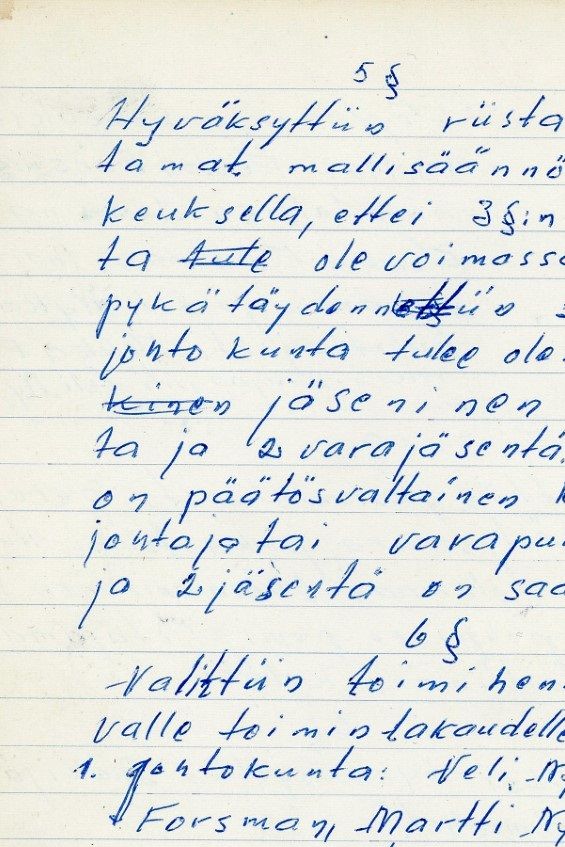 5 §
Hyväksyttiin riista
tamat mallisäännö
keuksella, ettei 3 §:n
ta tule ole voimassa
pykä täydennettiin s
johto kunta tulee ole
kinen jäseni nen
ta ja 2 varajäsentä.
on päätösvaltainen k
johtaja tai varapu
ja 2 jäsentä on saa
6 §
Valittiin toimihen
valle toimintakaudelle
1. Johtokunta: Veli Ny
Forsman, Martti Ny